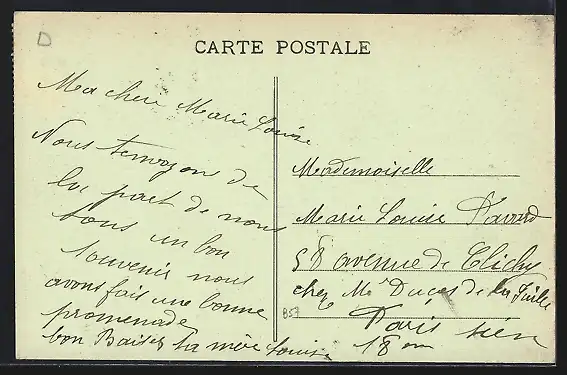 D
CARTE POSTALE
Ma chere Marie Louise
Nous temoyon de
la part de nous
tous un bon
souvenir nous
avons fait une bonne
promenade
bon Baiser ta mère Louise
857
Mademoiselle
Marie Louise
58 avenue de Clichy
chez Mr Ducos de la
Paris
18 em